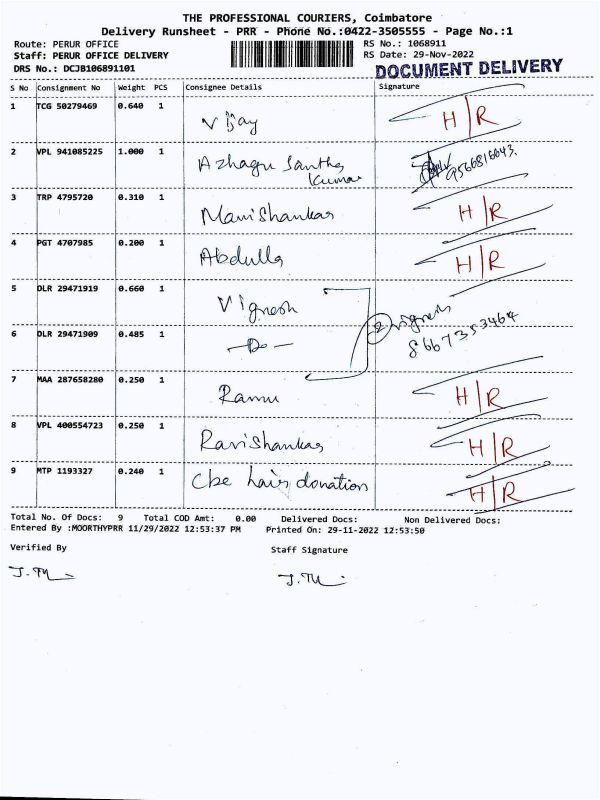 THE PROFESSIONAL COURIERS, Coimbatore
Delivery Runsheet - PRR - Phone No.:0422-3505555 - Page No.:1
Route: PERUR OFFICE RS No.: 1068911
Staff: PERUR OFFICE DELIVERY RS Date: 29-Nov-2022
DRS No.: DCJB106891101 DOCUMENT DELIVERY
S No Consignment No Weight PCS Consignee Details Signature
1 TCG 50279469 0.640 1 Vijay H/R
2 VPL 941085225 1.000 1 Azhagu Santha Kumar 9566816643.
3 TRP 4795720 0.310 1 Manishankar H/R
4 PGT 4707985 0.200 1 Abdulla H/R
5 DLR 29471919 0.660 1 Vignesh
6 DLR 29471909 0.485 1 -Do- 2 vignesh 8667353464
7 MAA 287658280 0.250 1 Ramu H/R
8 VPL 400554723 0.250 1 Ravishankar H/R
9 MTP 1193327 0.240 1 Cbe hair donation H/R
Total No. Of Docs: 9 Total COD Amt: 0.00 Delivered Docs: Non Delivered Docs:
Entered By :MOORTHYPRR 11/29/2022 12:53:37 PM Printed On: 29-11-2022 12:53:50
Verified By Staff Signature